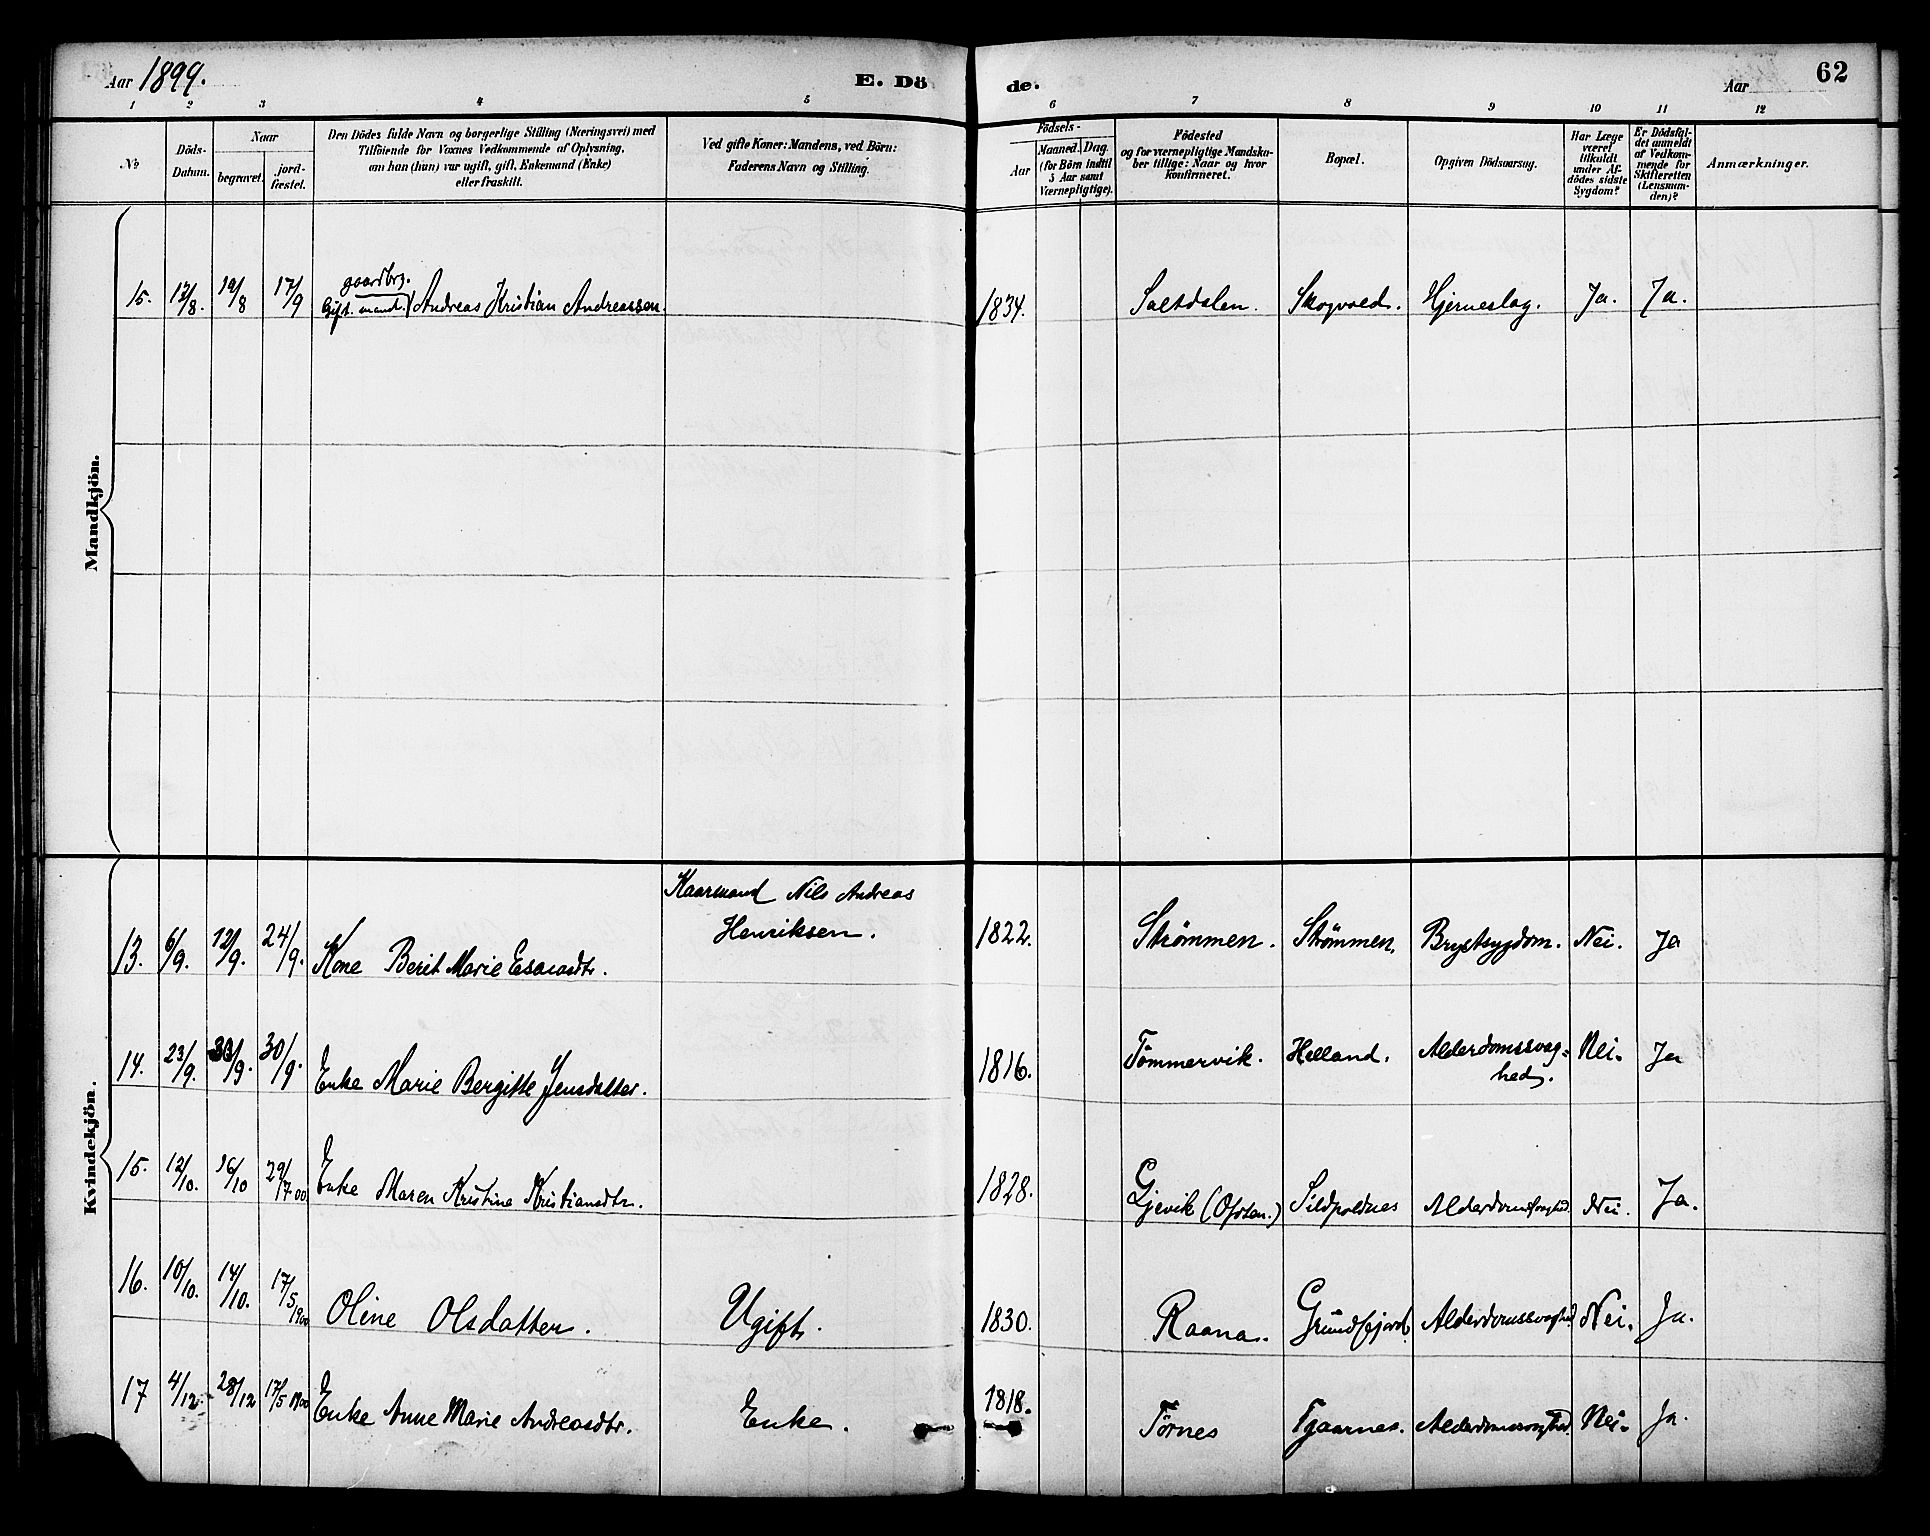 Aar 1899.
E. Dö
de.
Aar
62
1 2 3 4 5 6 7 8 9 10 11 12
No
Döds-Datum.
Naar
begravet.
jord-fæstet.
Den Dödes fulde Navn og borgerlige Stilling (Næringsvei) med
Tilföiende for Voxnes Vedkommende af Oplysning,
om han (hun) var ugift, gift, Enkemand (Enke)
eller fraskilt.
Ved gifte Koner: Mandens, ved Börn:
Faderens Navn og Stilling.
Födsels-
Aar
Maaned. Dag.
(for Börn indtil
5 Aar samt
Værnepligtige).
Födested
og for værnepligtige Mandska-
ber tillige: Naar og hvor
konfirmeret.
Bopæl.
Opgiven Dödsaarsag.
Har Læge
været
tilkaldt
under Af-
dödes sidste
Sygdom?
Er Dödsfal-
det anmeldt
af Vedkom-
mende for
Skifteretten
(Lensman-
den)?
Anmærkninger.
Mandkjön.
gaardbrg.
15. 12/8. 19/8 17/9 Gift. mand. Andreas Kristian Andreassen. 1834. Saltdalen. Skogvold. Hjerneslag. Ja. Ja.
Kvindekjön.
Kaarmand Nils Andreas
Henriksen.
13. 6/9. 12/9. 24/9. Kone Berit Marie Esaiasdtr. 1822. Strømmen. Strømmen. Brystsygdom. Nei. Ja
14. 23/9. 30/9. 30/9. Enke Marie Bergitte Jensdatter. 1816. Tømmervik. Helland. Alderdomssvag=
hed. Nei. Ja
15. 12/10. 16/10 29/7.00 Enke Maren Kristine Kristiansdtr. 1828. Gjevik (Ofoten.) Sildpoldnes Alderdomssvaghed. Nei. Ja.
16. 10/10. 14/10. 17/5 1900 Oline Olsdatter. Ugift. 1830. Raana. Grundfjord. Alderdomssvaghed Nei. Ja.
17 4/12. 28/12 17/5 1900 Enke Anne Marie Andreasdtr. Enke. 1818. Tørnes Tjaarnes. Alderdomssvaghed. Nei. Ja.